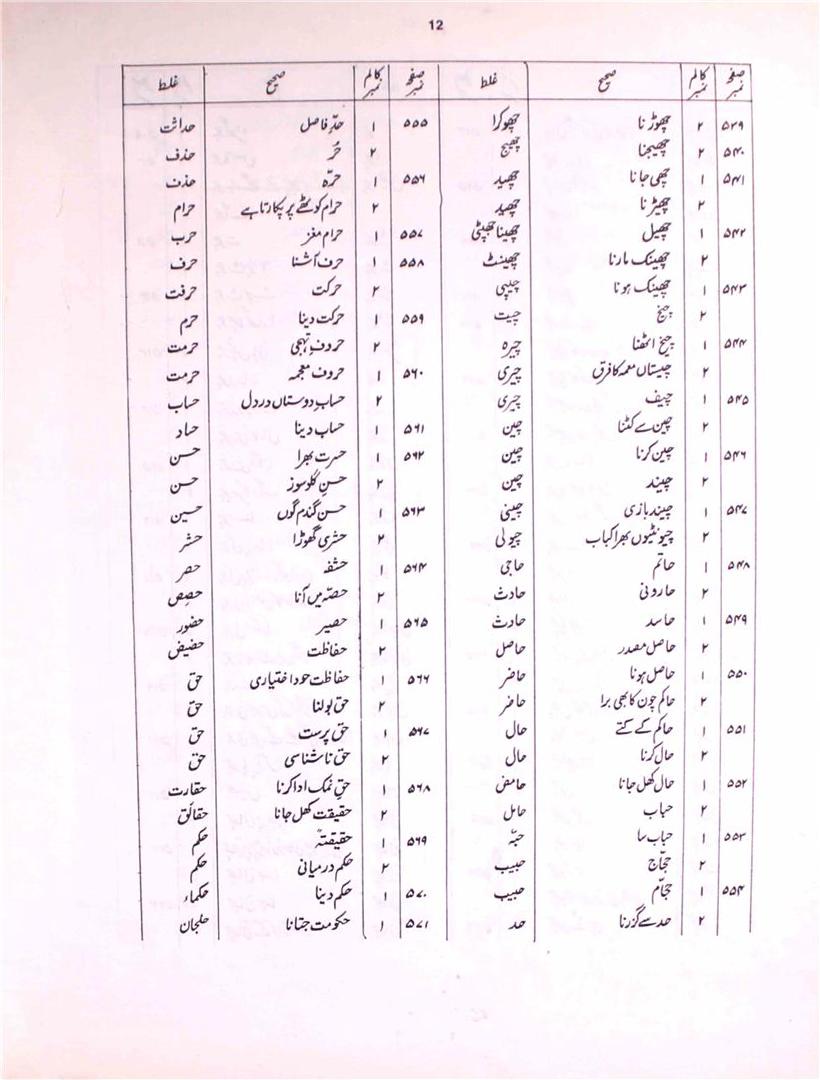 12
صفحہ نمبر کالم نمبر صحیح غلط صفحہ نمبر کالم نمبر صحیح غلط
۵۳۹ ۲ چھوڑنا چھوکرا ۵۵۵ ۱ حدِ فاصل حداثت
۵۴۰ ۲ چھیجنا چھیج ۲ حُر حذف
۵۴۱ ۱ چھی جانا چھید ۵۵۶ ۱ حرّہ حذف
۲ چھیڑنا چھید ۲ حرام کوٹھے پر پکارتا ہے حرام
۵۴۲ ۱ چھیل چھینا جھپٹی ۵۵۷ ۱ حرام مغز حرب
۲ چھینک مارنا چھینٹ ۵۵۸ ۱ حرف آشنا حرف
۵۴۳ ۱ چھینک ہونا چیپی ۲ حرکت حرفت
۲ چیخ چیت ۵۵۹ ۱ حرکت دینا حرم
۵۴۴ ۱ چیخ اٹھنا چیرہ ۲ حروفِ تہجی حرمت
۲ چیستاں معمہ کا فرق چیری ۵۶۰ ۱ حروف معجمہ حرمت
۵۴۵ ۱ چیف چیری ۲ حسابِ دوستاں در دل حساب
۲ چین سے کٹنا چین ۵۶۱ ۱ حساب دینا حساد
۵۴۶ ۱ چین کرنا چین ۵۶۲ ۱ حسرت بھرا حسن
۲ چیند چین ۲ حسنِ گلوسوز حسن
۵۴۷ ۱ چیند بازی چینی ۵۶۳ ۱ حسن گندم گوں حسین
۲ چیونٹیوں بھرا کباب چیولی ۲ حشری گھوڑا حشر
۵۴۸ ۱ حاتم حاجی ۵۶۴ ۱ حشفہ حصر
۲ حارونی حادث ۲ حصّہ میں آنا حصص
۵۴۹ ۱ حاسد حادث ۵۶۵ ۱ حصیر حضور
۲ حاصل مصدر حاصل ۲ حفاظت حضیض
۵۵۰ ۱ حاصل ہونا حاضر ۵۶۶ ۱ حفاظت خود اختیاری حق
۲ حاکم چون کا بھی برا حاضر ۲ حق بولنا حق
۵۵۱ ۱ حاکم کے کتے حال ۵۶۷ ۱ حق پرست حق
۲ حال کرنا حال ۲ حق ناشناسی حق
۵۵۲ ۱ حال کھل جانا حامض ۵۶۸ ۱ حقِ نمک ادا کرنا حقارت
۲ حباب حامل ۲ حقیقت کھل جانا حقائق
۵۵۳ ۱ حباب سا حبّہ ۵۶۹ ۱ حقیقتہً حکم
۲ حجّاج حبیب ۲ حکم درمیانی حکم
۵۵۴ ۱ حجّام حبیب ۵۷۰ ۱ حکم دینا حکماء
۲ حد سے گزرنا حد ۵۷۱ ۱ حکومت جتانا حلجان